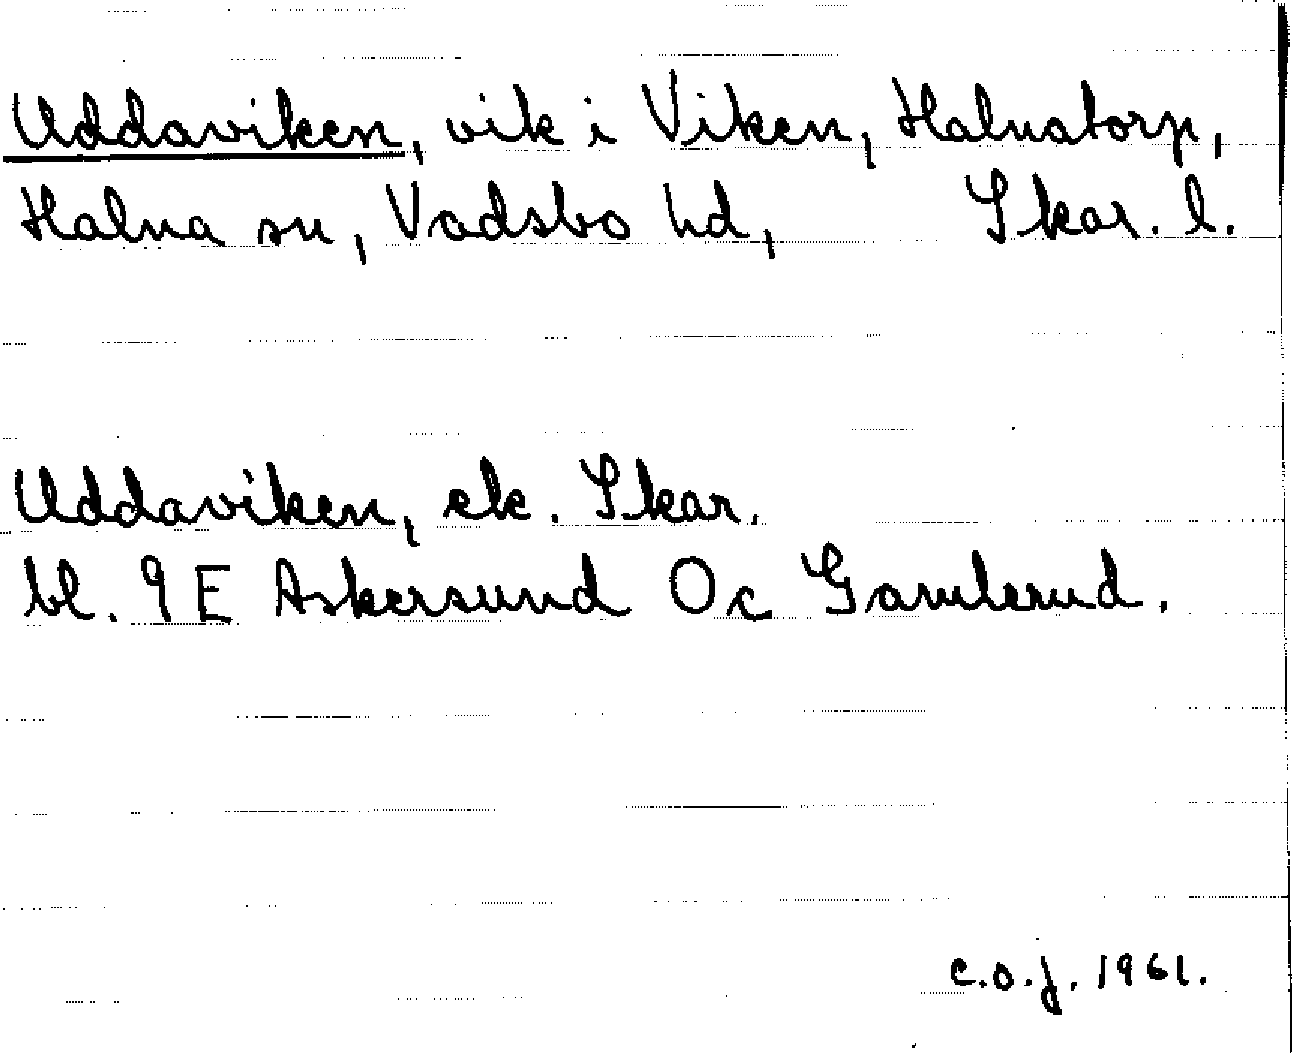 Uddaviken, vik i Viken, Halnatorp,
Halna sn, Vadsbo hd, Skar. l.
Uddaviken, ek. Skar.
bl. 9 E Askersund Oc Gamlerud.
c.o.j. 1961.